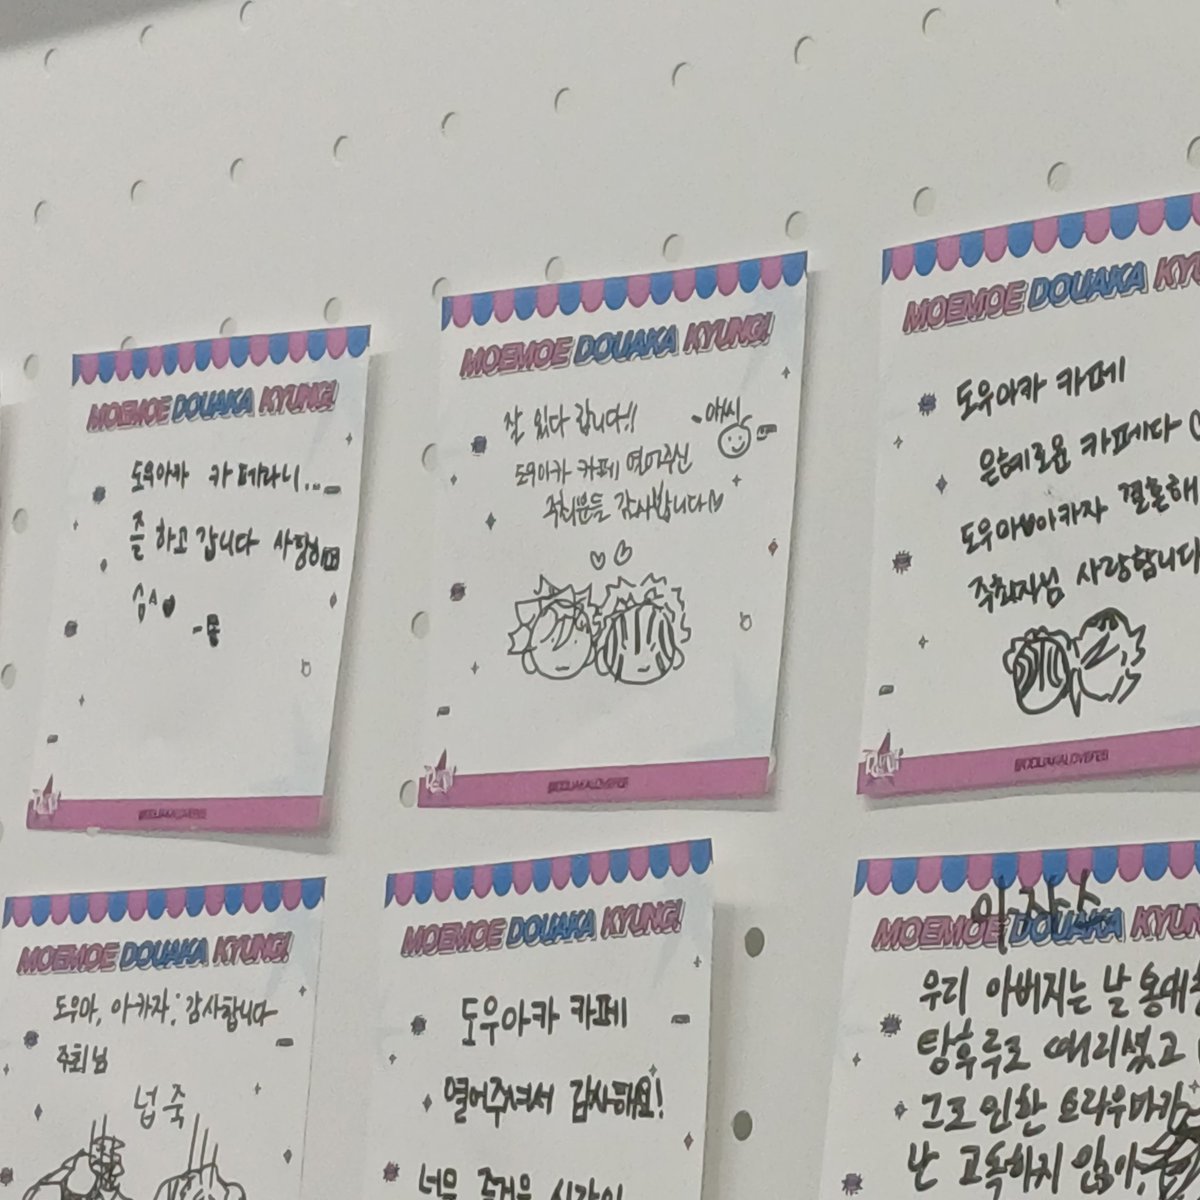 MOEMOE DOUAKA KYUNG!
도우아카 카페라니...
즐 하고 갑니다 사랑해
MOEMOE DOUAKA KYUNG!
잘 있다 갑니다!!
도우아카 카페 열어주신
주최분들 감사합니다♡
@DOUAKALOVEFES
MOEMOE DOUAKA KY
도우아카 카페
은혜로운 카페다
도우아♥아카자 결혼해
주최자님 사랑합니다
@DOUAKALOVEFES
@DOUAKALOVEFES
MOEMOE DOUAKA KYUNG!
도우마, 아카자: 감사합니다
주최님
넙죽
MOEMOE DOUAKA KYUNG!
도우아카 카페
열어주셔서 감사해요!
너무 즐거운 시간이
아자스
MOEMOE DOUAKA KYUN
우리 아버지는 날 홍대
탕후루로 때리셨고
그로 인한 트라우마가
난 고독하지 않아,